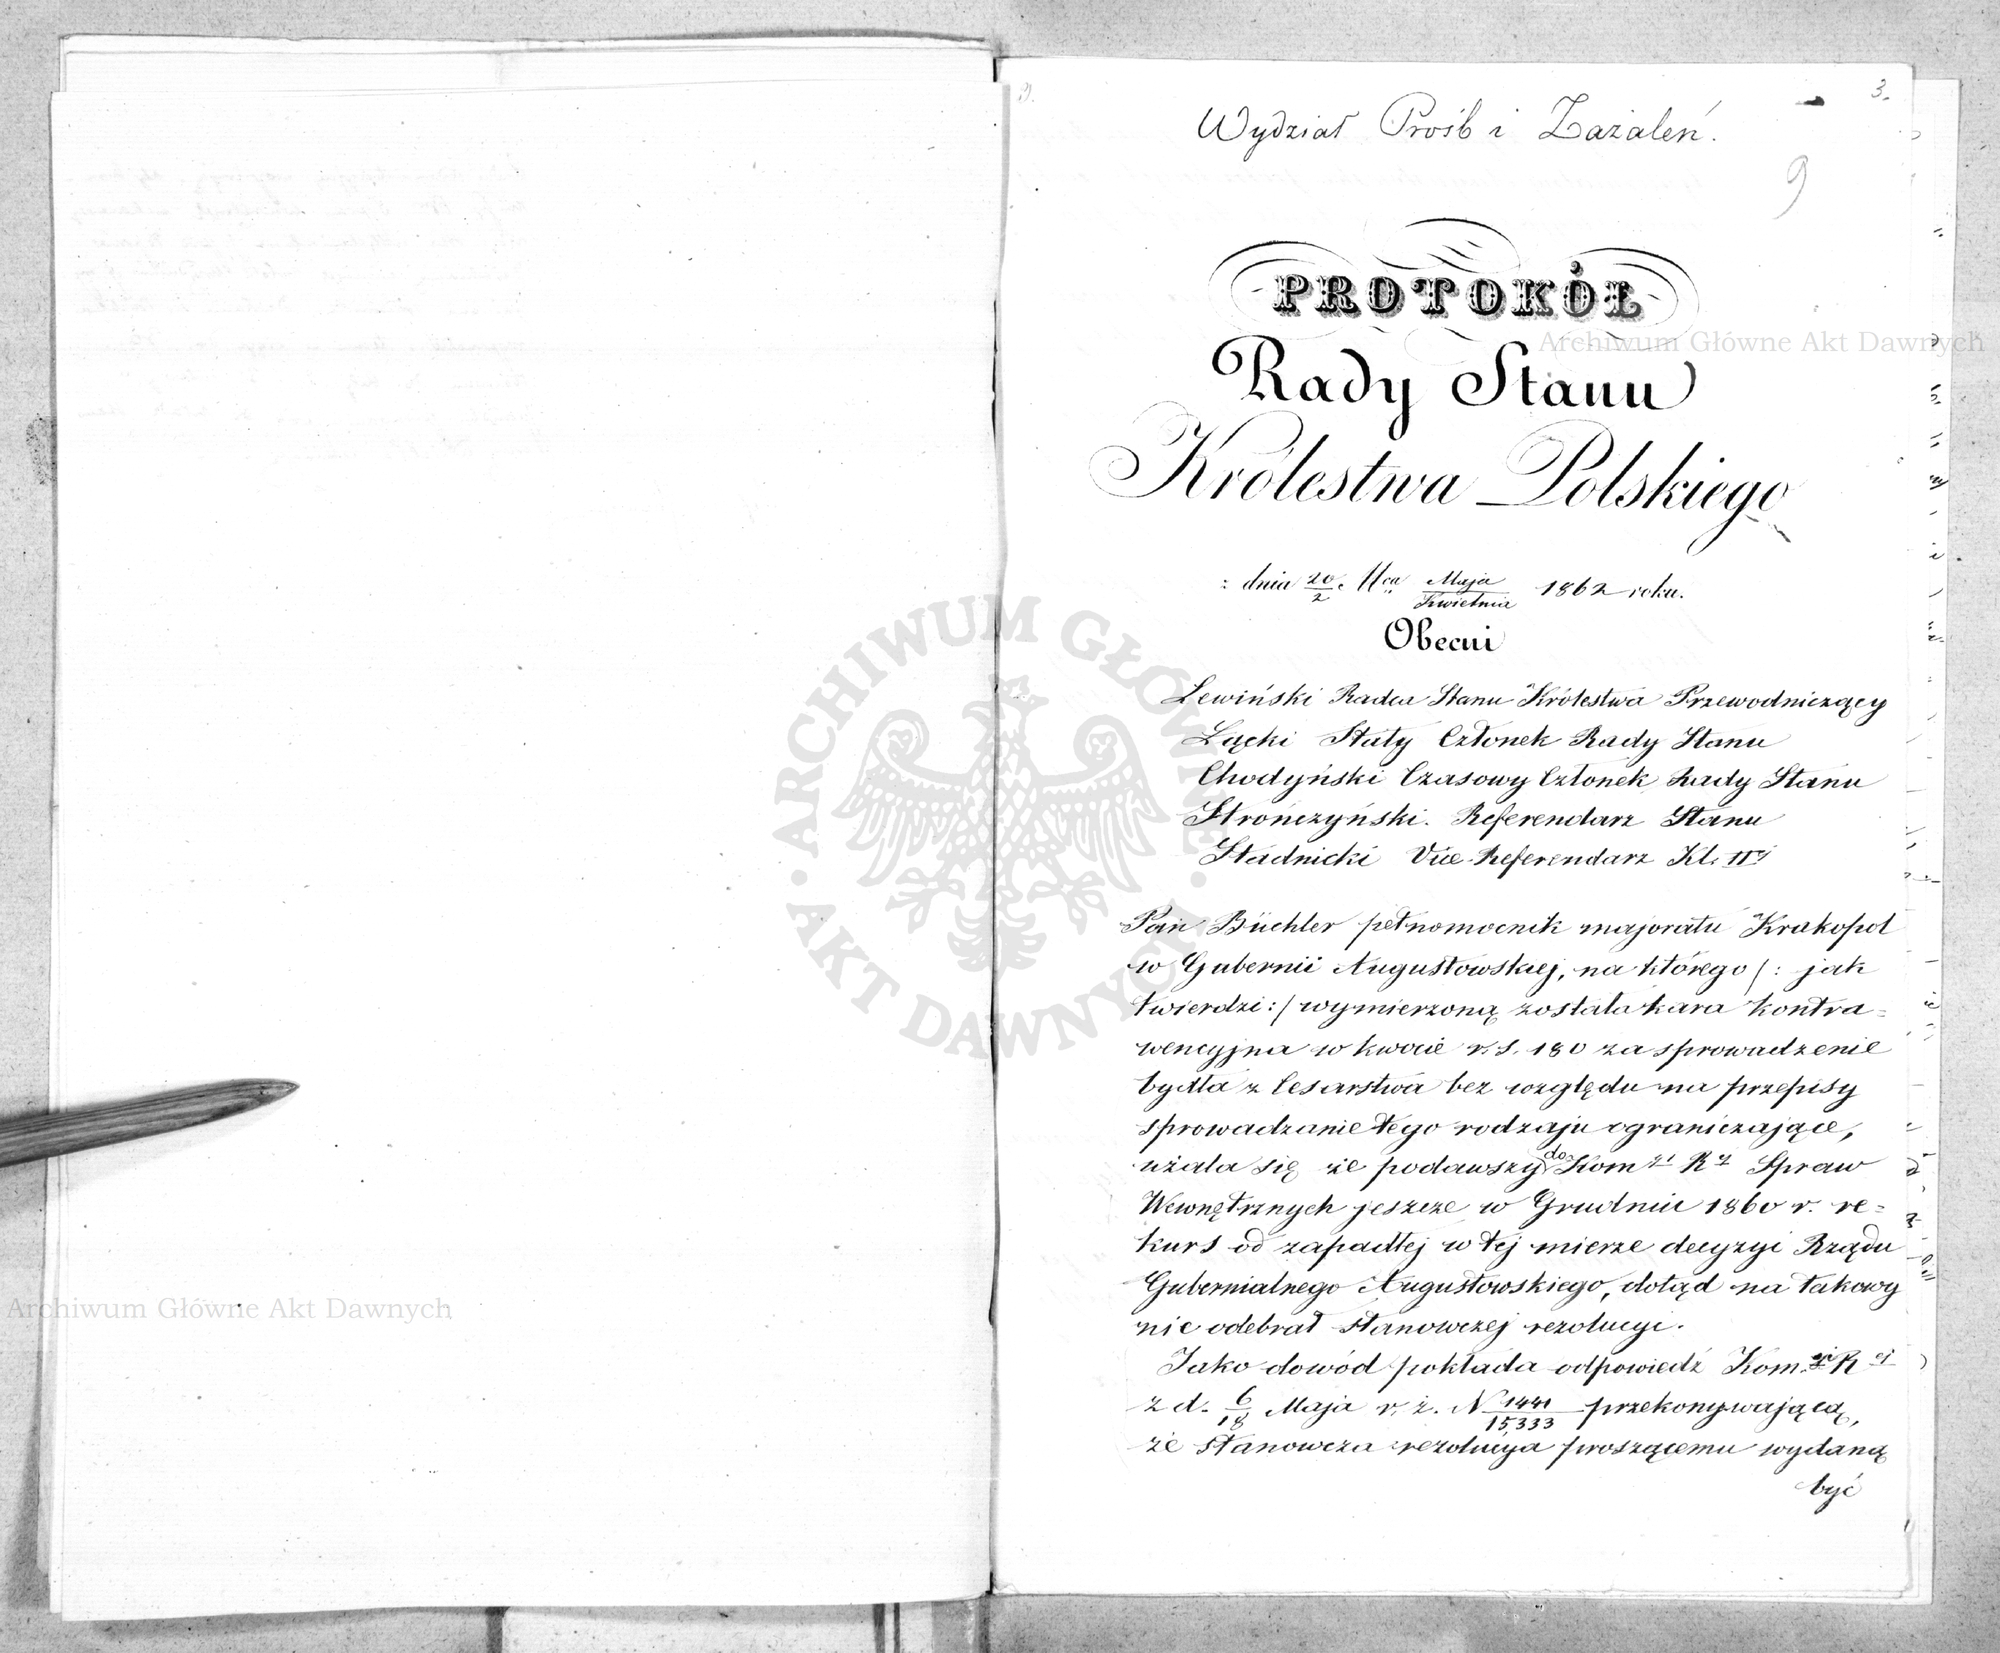 3.
Wydział Prośb i Zażaleń.
9
PROTOKÓŁ
Rady Stanu
Królestwa Polskiego
: dnia 20/2 Mca Maja/Kwietnia 1862 roku.
Obecni
Lewiński Radca Stanu Królestwa Przewodniczący
Łącki Stały Członek Rady Stanu
Chodyński Czasowy Członek Rady Stanu
Strończyński. Referendarz Stanu
Stadnicki Vice-Referendarz Kl. IIej
Pan Büchler pełnomocnik majoratu Krakopol
w Gubernii Augustowskiej, na którego /: jak
twierdzi :/ wymierzoną została kara kontra=
wencyjna w kwocie r.s. 180 za sprowadzenie
bydła z Cesarstwa bez względu na przepisy
sprowadzanie tego rodzaju ograniczające,
użala się że podawszy do Kom yi Rz Spraw
Wewnętrznych jeszcze w Grudniu 1860 r. re=
kurs od zapadłej w tej mierze decyzyi Rządu
Gubernialnego Augustowskiego, dotąd na takowy
nie odebrał stanowczej rezolucyi.
Jako dowód pokłada odpowiedź Kom. yi R ej
z d. 6/18 Maja r. z. N 1441/15,333 przekonywającą,
że stanowcza rezolucya proszącemu wydaną
być
Archiwum Główne Akt Dawnych
Archiwum Główne Akt Dawnych
ARCHIWUM GŁÓWNE · AKT DAWNYCH ·